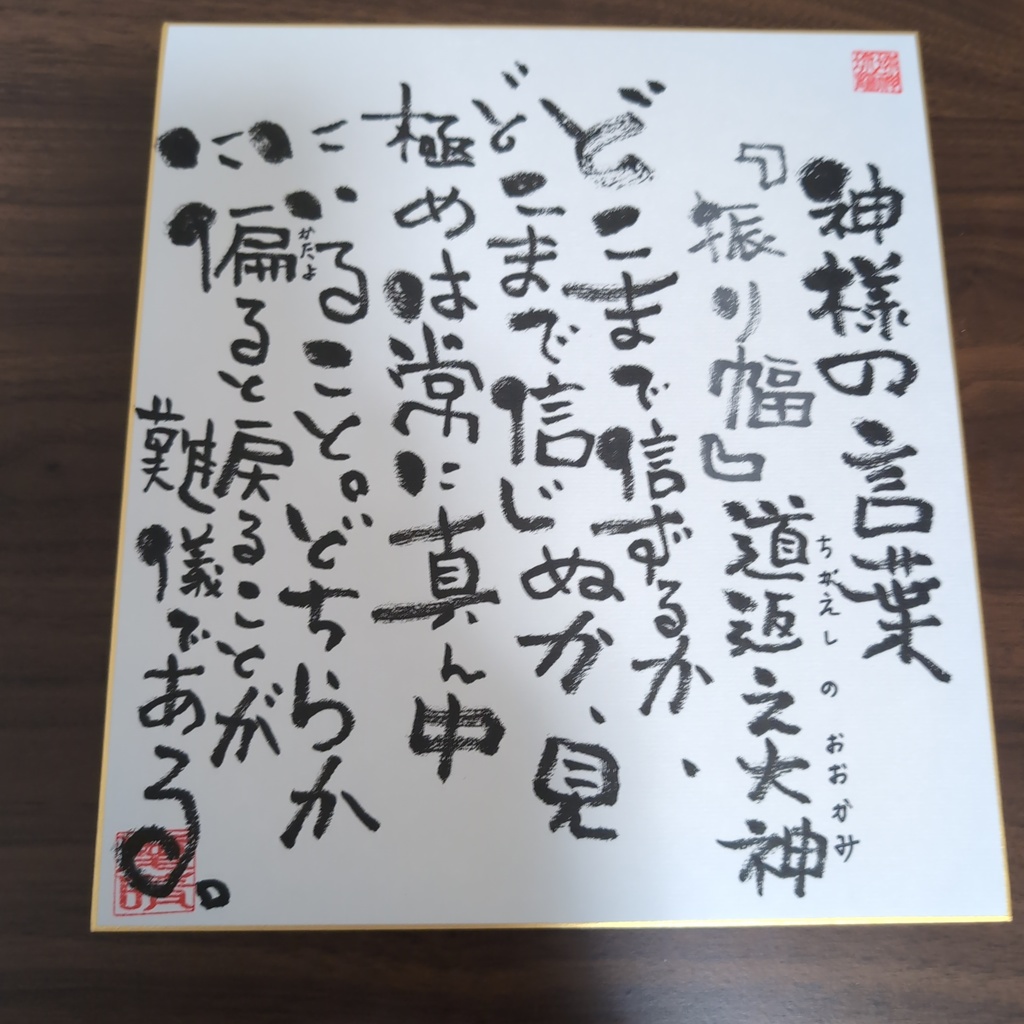 神様の言葉
『振り幅』道返之大神
ちがえしのおおかみ
どこまで信ずるか、
どこまで信じぬか、見
極めは常に真ん中
にいること。どちらか
に偏ると戻ることが
かたよ
難儀である。